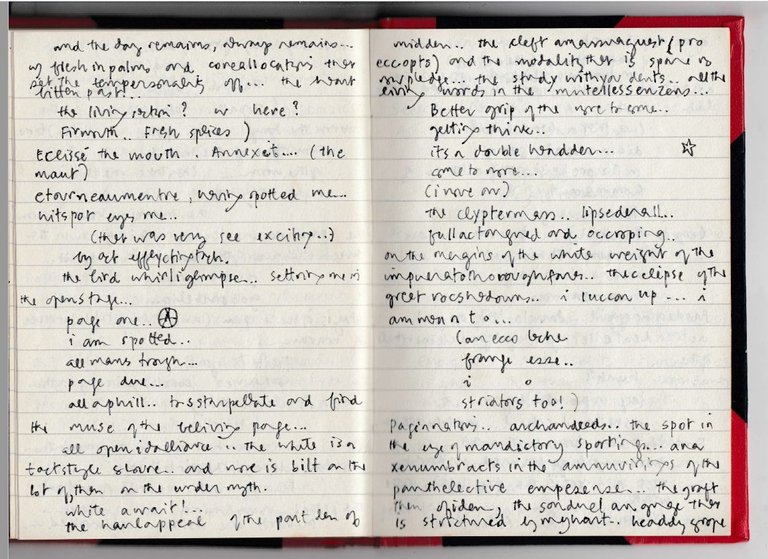 and the day remains, always remains...
w/ fresh in palms and coreallocations that
set the tempersonality off... the heart
bitten past!..
the living return? w here?
Firmouth.. Fresh splices)
Eclissé the mouth Annexeit.... (the
maut)
etourneaumentre, having spotted me...
hitspot eyes me...
(that was very see exciting..)
by act
the bird whirliglimpse.. settning me in
the openstage...
page one.. Ⓐ
i am spotted..
all mans trough...
page due...
all aphill.. to sstarpellate and find
the muse of the beliving page...
all openidalliance.. the white is a
tactstyle slave.. and nore is bilt on the
lot of them on the under myth.
white await!...
the haulappeal of the part den of
midden.. the cleft (pro
eccopts) and the modality that is spare is
the study withyou dents.. all the
living words in the
Better grip of the nore to come..
getting think...
its a double hradder... ☆
come to nore...
(i nove on)
the clyptermars.. lipsedenall..
fullactongned and occroping..
on the margins of the white weight of the
the eclipse of the
great rocshadowns.. i luccan up... i
am mean to...
(an ecco lche
frange esse..
i o
striators too!)
Paginnators.. archandeeds.. the spot in
the eye of mandictory sportings... and
xenumbracts in the ammuvirings of the
panthelective empesense.. the graft
then of iden, the sonduel an gnage that
is strictured by myhart.. headdy grope